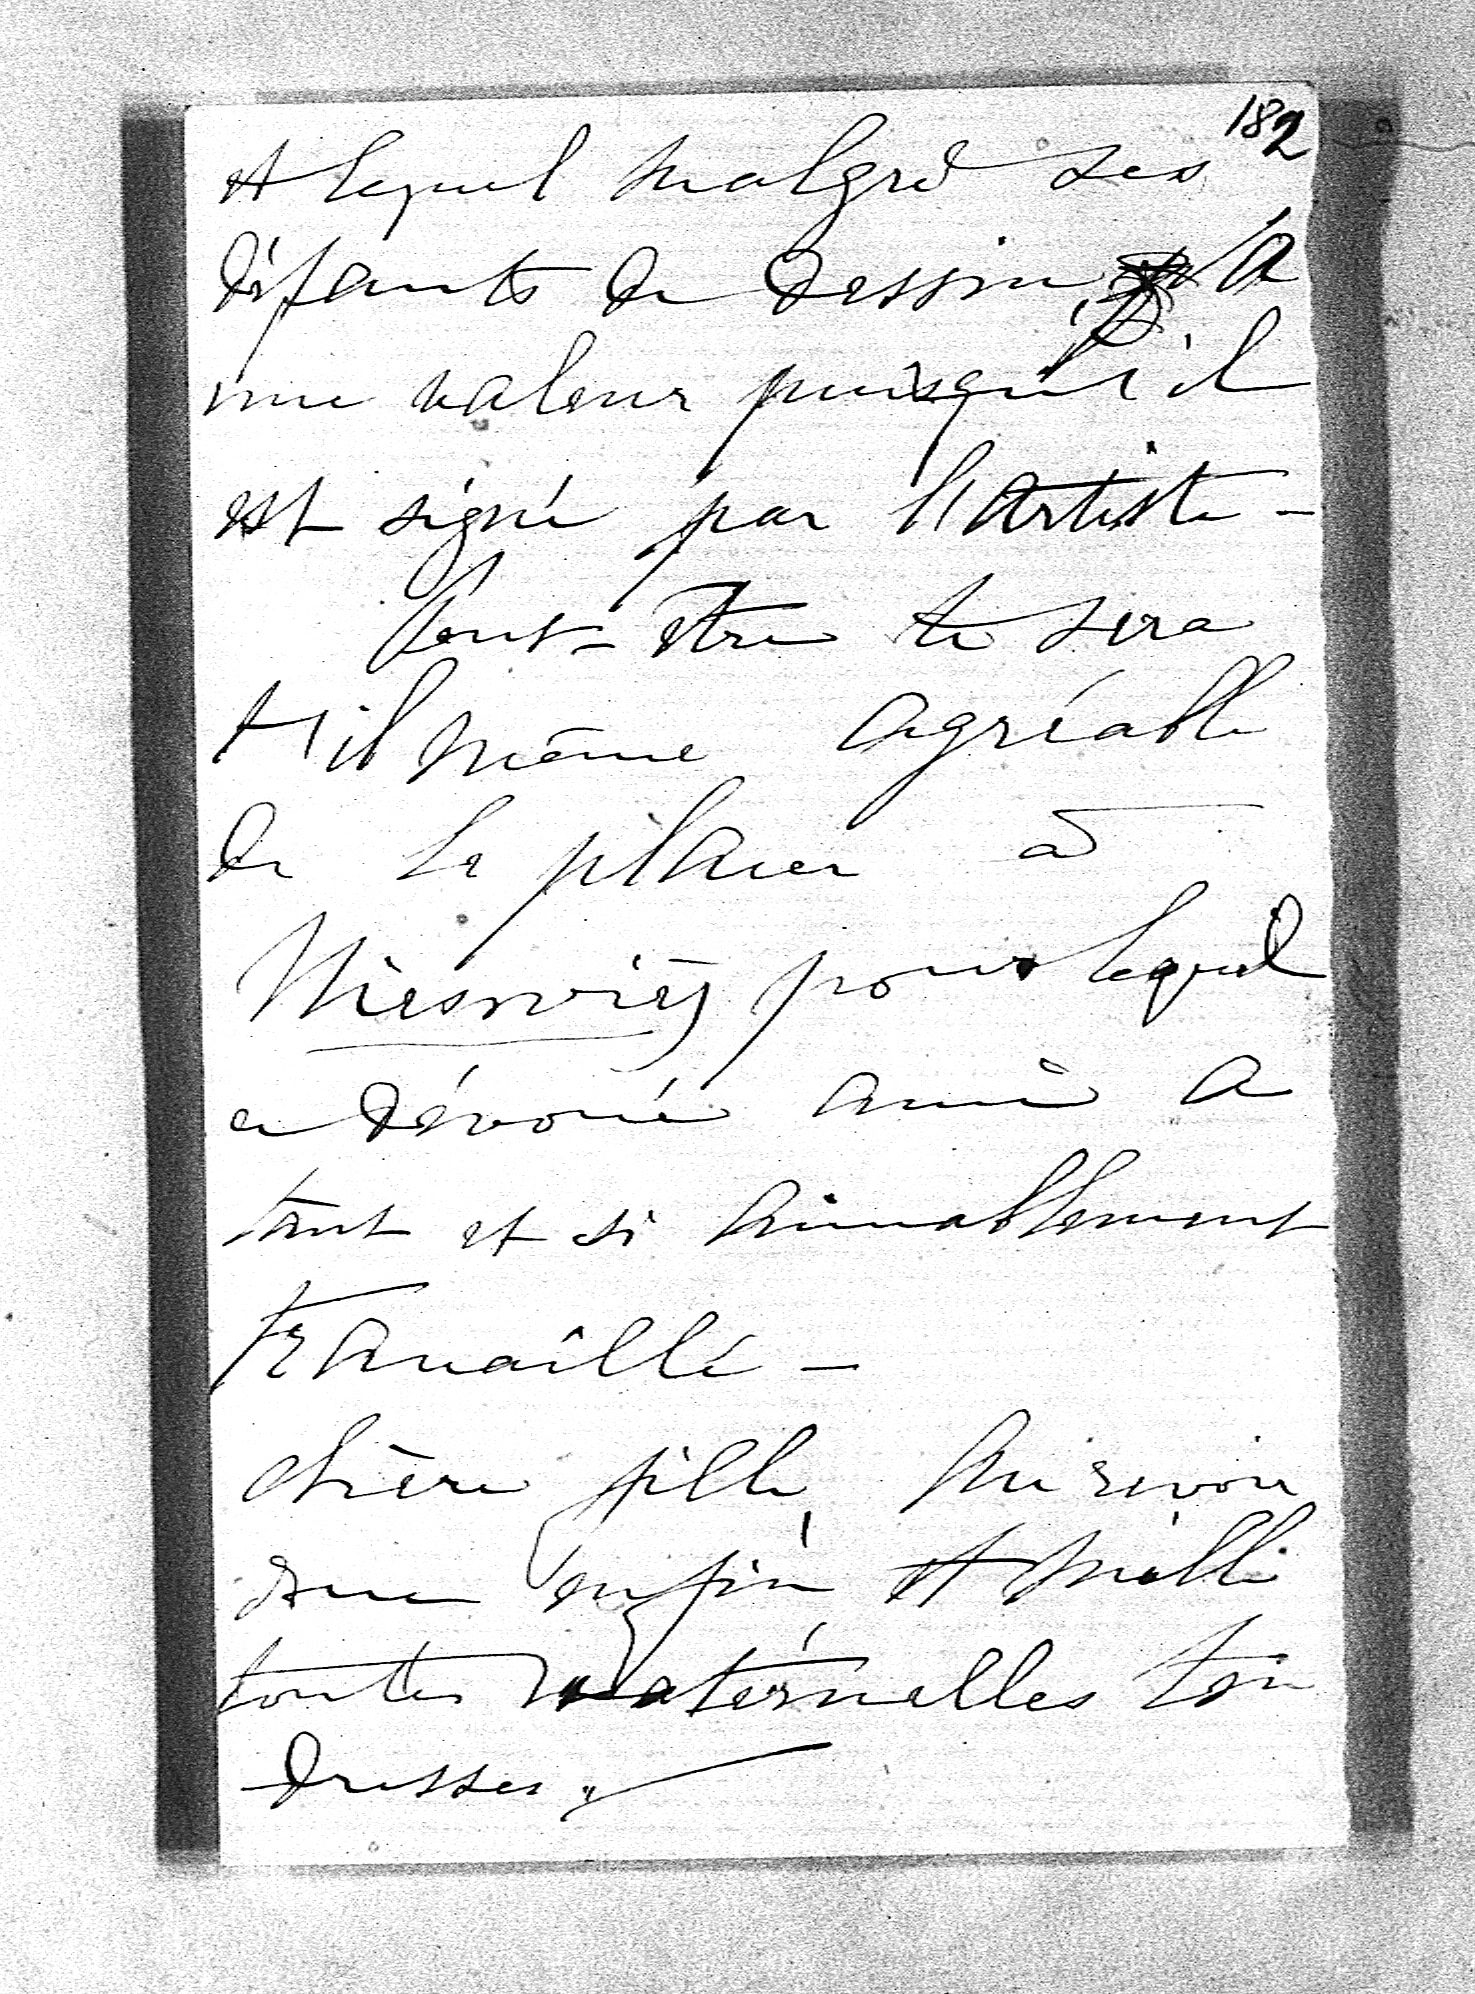 182
et lequel malgré ses
défauts de dessin a
une valeur puisqu'il
est signé par l'Artiste -
Peut-être te sera
t'il même agréable
de le placer à
pour lequel
ce dévoué ami a
tant et si aimablement
travaillé -
chère fille au revoir
enfin et mille
toutes maternelles ten
dresses